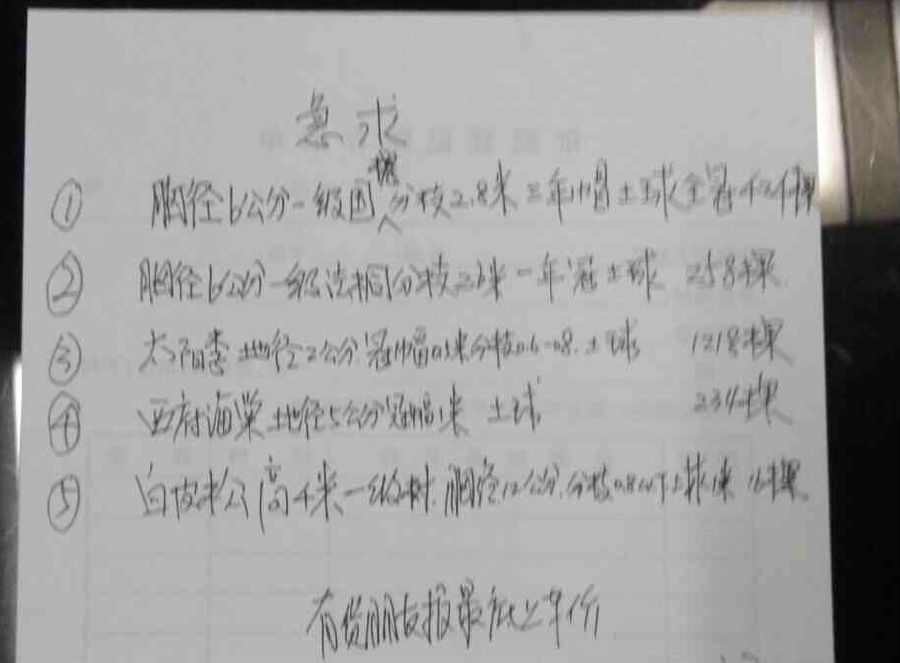 急求
① 胸径6公分一级国槐分枝2.8米三年帽土球全冠
② 胸径6公分一级法桐分枝2.8米一年冠土球 258棵
③ 太阳李地径2公分冠幅0.8米分枝0.6-0.8.土球 1218棵
④ 西府海棠土地径5公分冠幅1米 土球 234棵
⑤ 白皮松高4米一级树.胸径12公分.分枝0.8以下土球1米 16棵
有货朋友报最低上车价